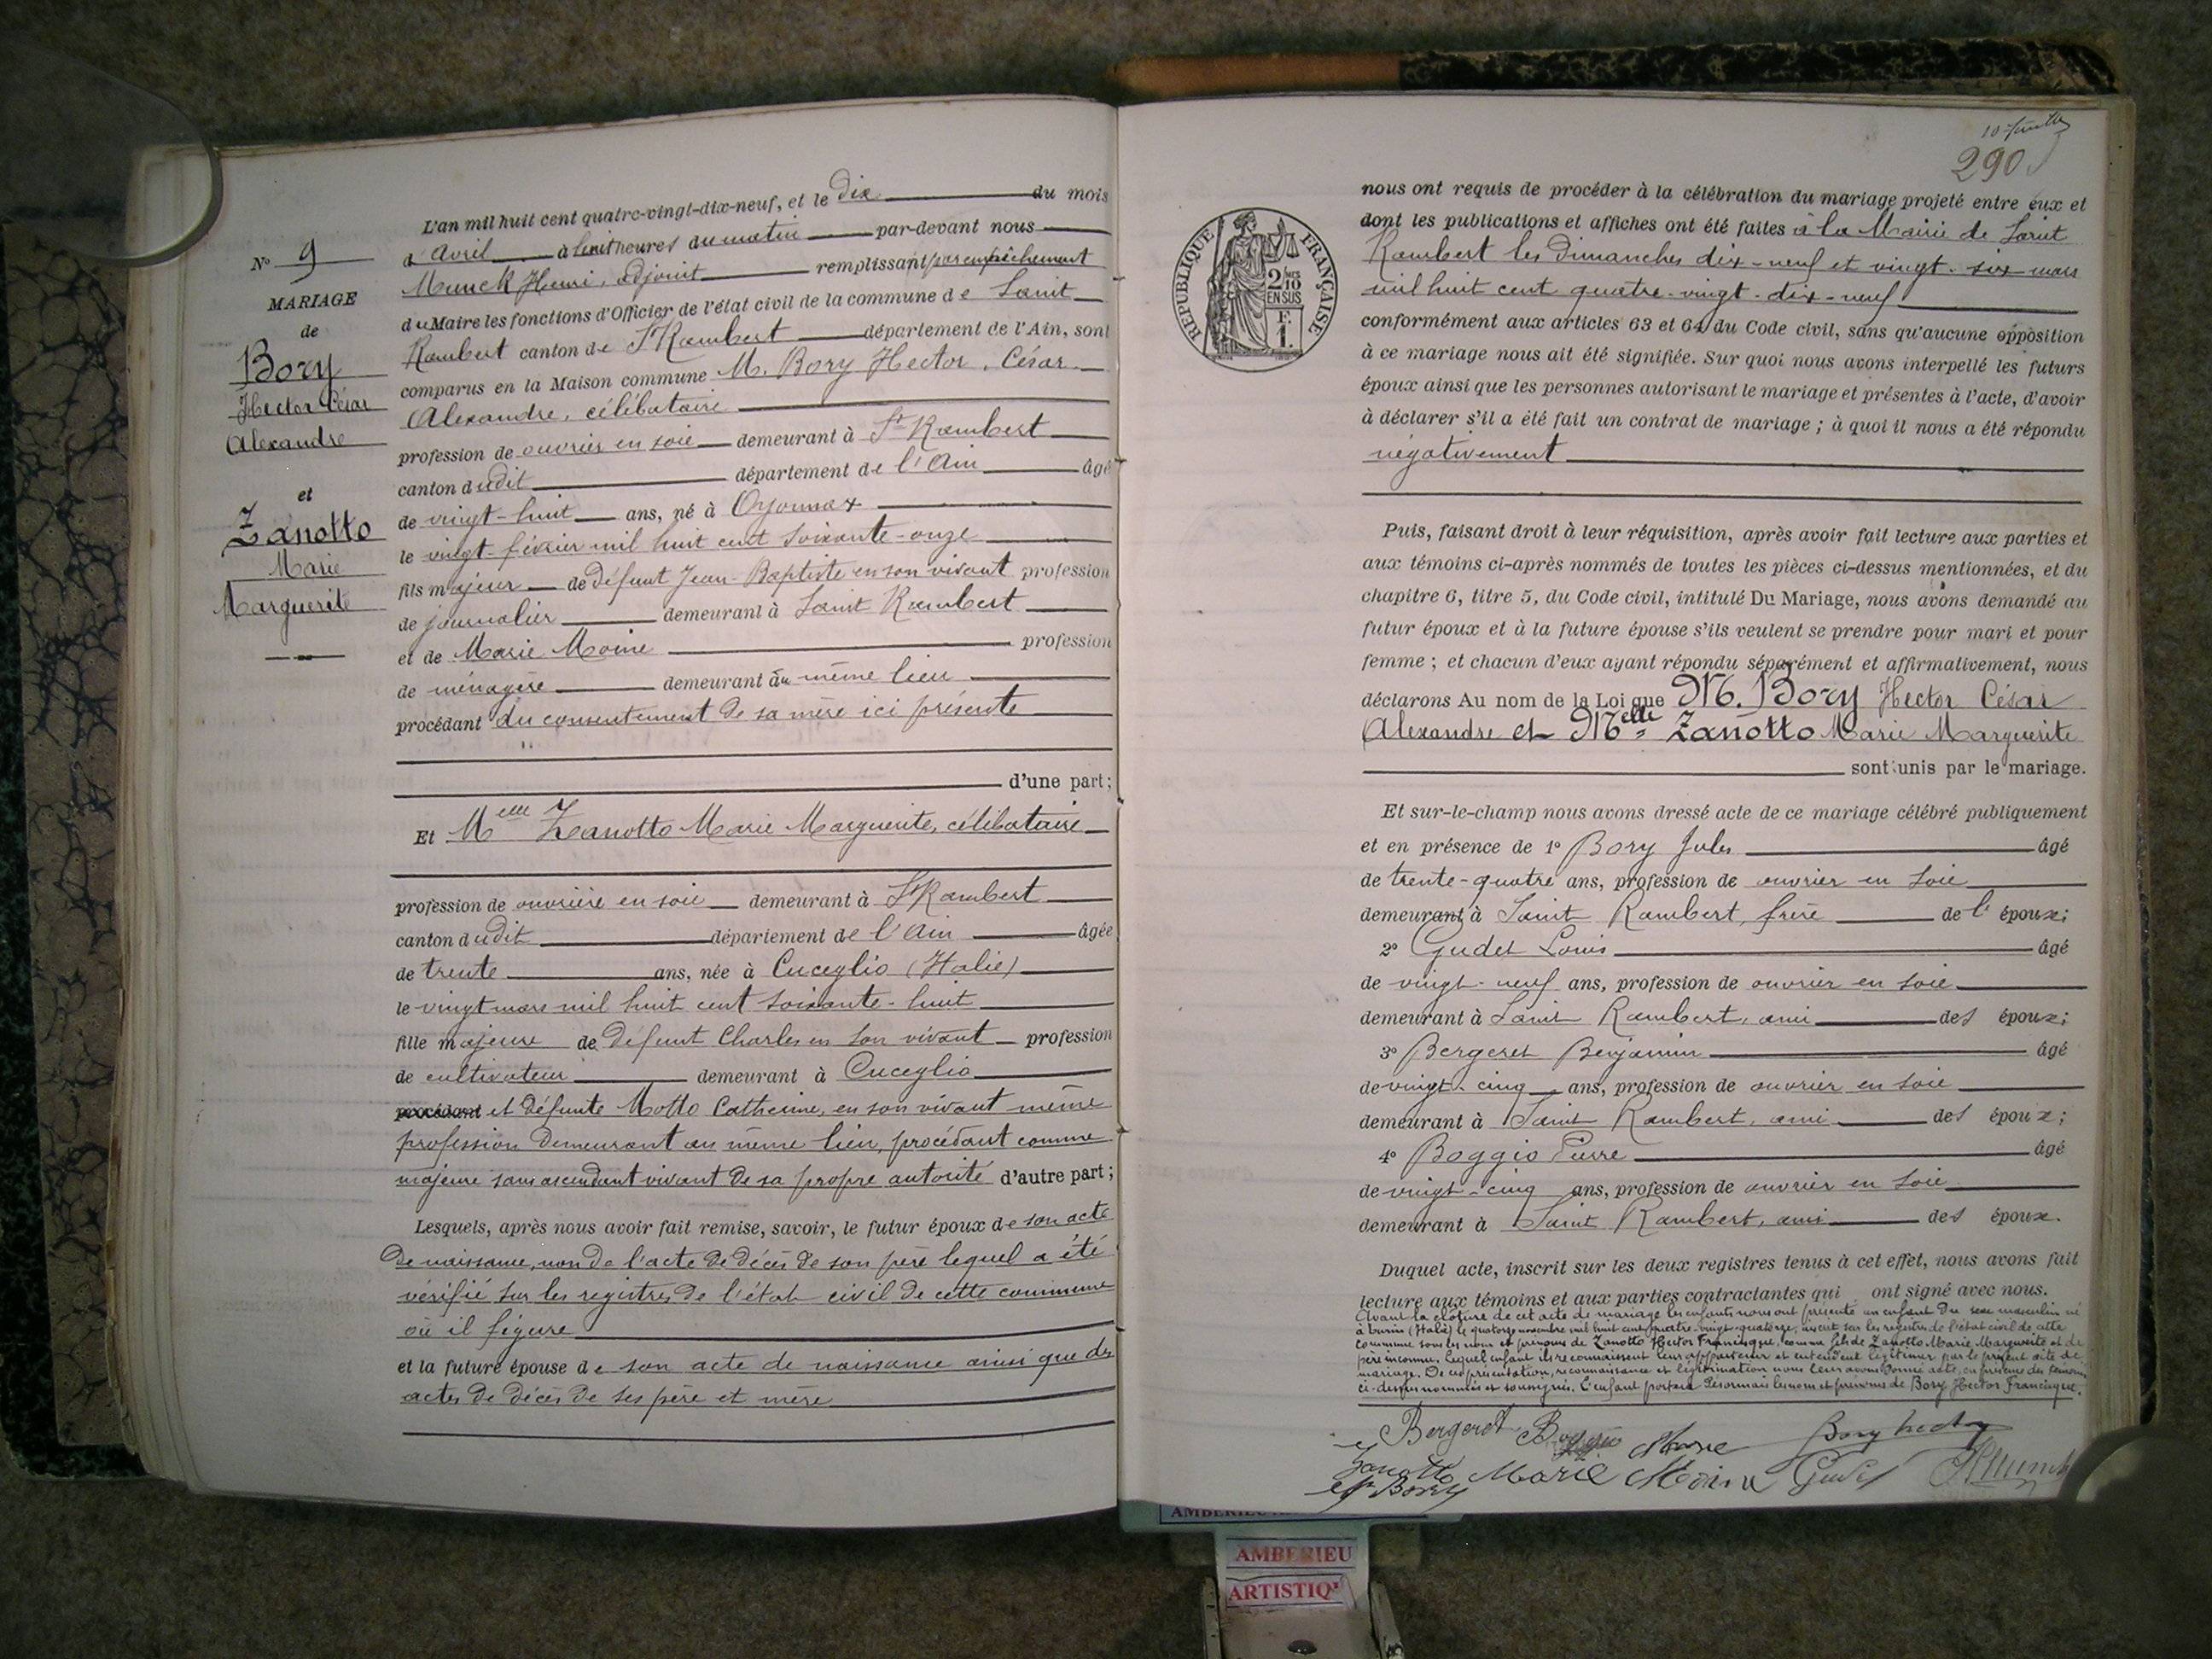 N° 9
MARIAGE
de
Bory
Hector César
Alexandre
et
Zanotto
Marie
Marguerite
L'an mil huit cent quatre-vingt-dix-neuf, et le dix du mois
d'Avril à huit heures du matin par-devant nous
Munck Henri, adjoint remplissant par empêchement
du Maire les fonctions d'Officier de l'état civil de la commune de Saint
Rambert canton de St Rambert département de l'Ain, sont
comparus en la Maison commune M. Bory Hector, César
Alexandre, célibataire
profession de ouvrier en soie demeurant à St Rambert
canton dudit département de l'Ain âgé
de vingt-huit ans, né à Oyonnax
le vingt février mil huit cent soixante-onze
fils majeur de défunt Jean-Baptiste en son vivant profession
de journalier demeurant à Saint Rambert
et de Marie Moine profession
de ménagère demeurant au même lieu
procédant du consentement de sa mère ici présente
d'une part;
Et Melle Zanotto Marie Marguerite, célibataire
profession de ouvrière en soie demeurant à St Rambert
canton dudit département de l'Ain âgée
de trente ans, née à Cuceglio (Italie)
le vingt mars mil huit cent soixante-huit
fille majeure de défunt Charles en son vivant profession
de cultivateur demeurant à Cuceglio
procédant et défunte Motto Catherine, en son vivant même
profession demeurant au même lieu, procédant comme
majeure sans ascendant vivant de sa propre autorité d'autre part;
Lesquels, après nous avoir fait remise, savoir, le futur époux de son acte
de naissance, non de l'acte de décès de son père lequel a été
vérifié sur les registres de l'état civil de cette commune
où il figure
et la future épouse de son acte de naissance ainsi que des
actes de décès de ses père et mère
290
nous ont requis de procéder à la célébration du mariage projeté entre eux et
dont les publications et affiches ont été faites à la Mairie de Saint
Rambert les Dimanches dix-neuf et vingt-six mars
mil huit cent quatre-vingt-dix-neuf
RÉPUBLIQUE FRANÇAISE
2 MES
10
EN SUS
F.
1.
conformément aux articles 63 et 64 du Code civil, sans qu'aucune opposition
à ce mariage nous ait été signifiée. Sur quoi nous avons interpellé les futurs
époux ainsi que les personnes autorisant le mariage et présentes à l'acte, d'avoir
à déclarer s'il a été fait un contrat de mariage; à quoi il nous a été répondu
négativement
Puis, faisant droit à leur réquisition, après avoir fait lecture aux parties et
aux témoins ci-après nommés de toutes les pièces ci-dessus mentionnées, et du
chapitre 6, titre 5, du Code civil, intitulé Du Mariage, nous avons demandé au
futur époux et à la future épouse s'ils veulent se prendre pour mari et pour
femme; et chacun d'eux ayant répondu séparément et affirmativement, nous
déclarons Au nom de la Loi que M. Bory Hector César
Alexandre et Melle Zanotto Marie Marguerite
sont unis par le mariage.
Et sur-le-champ nous avons dressé acte de ce mariage célébré publiquement
et en présence de 1° Bory Jules âgé
de trente-quatre ans, profession de ouvrier en soie
demeurant à Saint Rambert, frère de l'époux;
2° Gudet Louis âgé
de vingt-neuf ans, profession de ouvrier en soie
demeurant à Saint Rambert, ami des époux;
3° Bergeret Benjamin âgé
de vingt-cinq ans, profession de ouvrier en soie
demeurant à Saint Rambert, ami des époux;
4° Boggio Pierre âgé
de vingt-cinq ans, profession de ouvrier en soie
demeurant à Saint Rambert, ami des époux.
Duquel acte, inscrit sur les deux registres tenus à cet effet, nous avons fait
lecture aux témoins et aux parties contractantes qui ont signé avec nous.
Avant la clôture de cet acte de mariage les enfants nous ont présenté un enfant du sexe masculin né
à Turin (Italie) le quatorze novembre mil huit cent quatre-vingt-quatorze, inscrit sur les registres de l'état civil de cette
commune sous les nom et prénoms de Zanotto Hector Francisque, comme fils de Zanotto Marie Marguerite et de
père inconnu. Lequel enfant ils reconnaissent leur appartenir et entendent légitimer par le présent acte de
mariage. De ces présentation, reconnaissance et légitimation nous leur avons donné acte, en présence des témoins
ci-dessus nommés et soussignés. L'enfant portera désormais les nom et prénoms de Bory Hector Francisque.
Bergeret Boggio Bory hector
Zanotto Marie Moine Gudet HMunck
Bory
AMBERIEU
AMBERIEU
ARTISTIQ